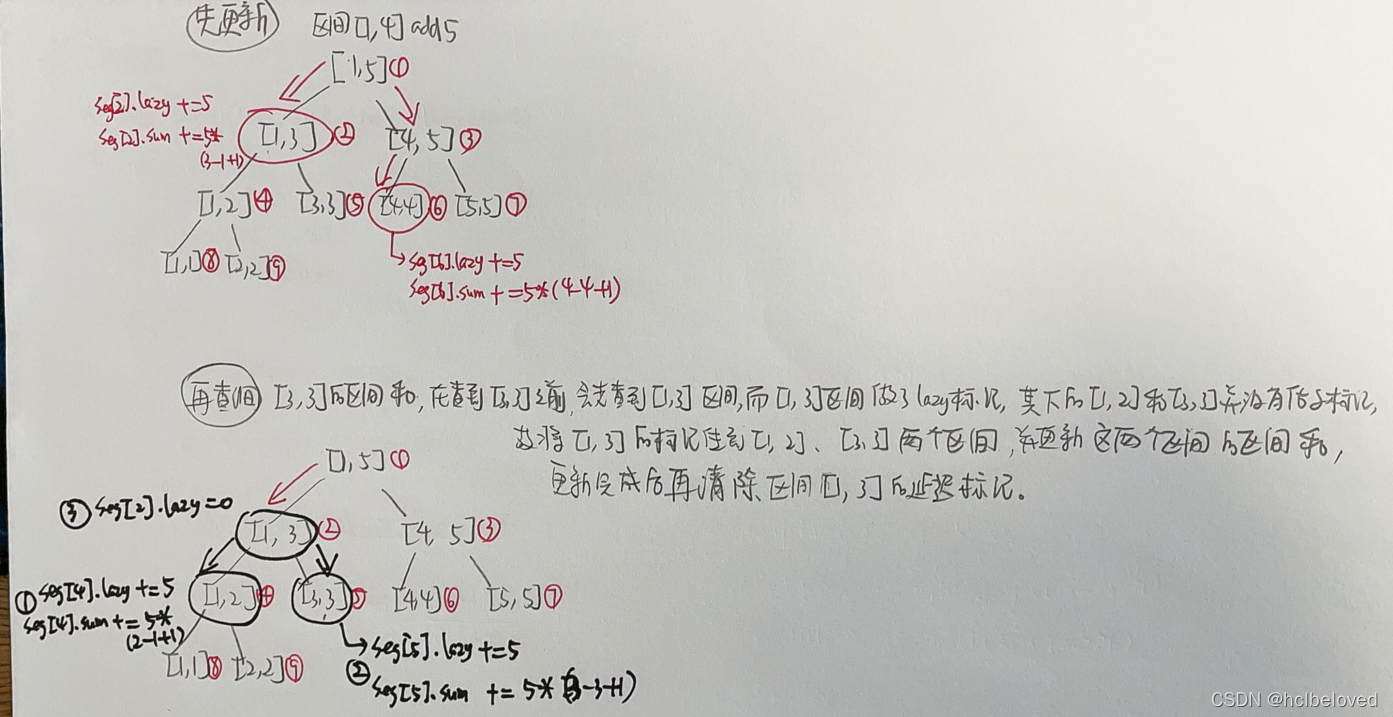 先更新 区间[1,4] add 5
[1,5]①
seg[2].lazy +=5
seg[2].sum +=5*
(3-1+1)
[1,3]② [4,5]③
[1,2]④ [3,3]⑤ [4,4]⑥ [5,5]⑦
[1,1]⑧ [2,2]⑨
seg[6].lazy +=5
seg[6].sum +=5*(4-4+1)
再查询 [3,3]的区间和,在查到[3,3]之前,会先查到[1,3]区间,而[1,3]区间做了lazy标记,其下的[1,2]和[3,3]并没有作标记,
故将[1,3]的标记传到[1,2]、[3,3]两个区间,并更新这两个区间的区间和,
更新完成后再清除区间[1,3]的延迟标记。
[1,5]①
③ seg[2].lazy=0
[1,3]② [4,5]③
① seg[4].lazy +=5
seg[4].sum += 5*
(2-1+1)
[1,2]④ [3,3]⑤ [4,4]⑥ [5,5]⑦
[1,1]⑧ [2,2]⑨
② seg[5].lazy +=5
seg[5].sum += 5*(3-3+1)
CSDN @hclbeloved